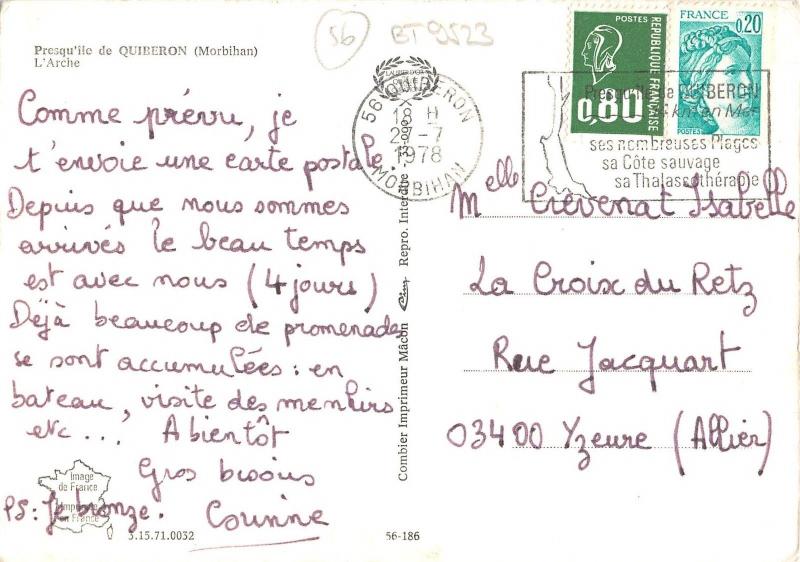 56
BT 9523
Presqu'île de QUIBERON (Morbihan)
L'Arche
Comme prévu, je
t'envoie une carte postale.
Depuis que nous sommes
arrivés le beau temps
est avec nous (4 jours)
Déjà beaucoup de promenades
se sont accumulées : en
bateau, visite des menhirs
etc... A bientôt
Gros bisous
PS: Je bronze.
Corinne
Image
de France
Imprimé
en France
3.15.71.0032
56-186
Combier Imprimeur Mâcon Cim Repro. Interdite
56 QUIBERON
18 H
27-7
1978
MORBIHAN
POSTES
REPUBLIQUE FRANÇAISE
0,80
FRANCE
0,20
POSTES
Presqu'île de QUIBERON
km en Mer
ses nombreuses Plages
sa Côte sauvage
sa Thalassothérapie
Melle Crevenat Isabelle
La Croix du Retz
Rue Jacquart
03400 Yzeure (Allier)